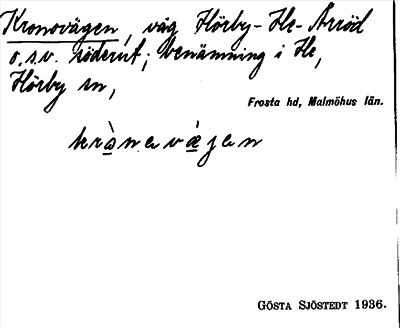 Kronovägen, väg Hörby-He-Årröd
o.s.v. söderut; benämning i He,
Hörby sn,
Frosta hd, Malmöhus län.
krànevæ̀jen
GÖSTA SJÖSTEDT 1936.